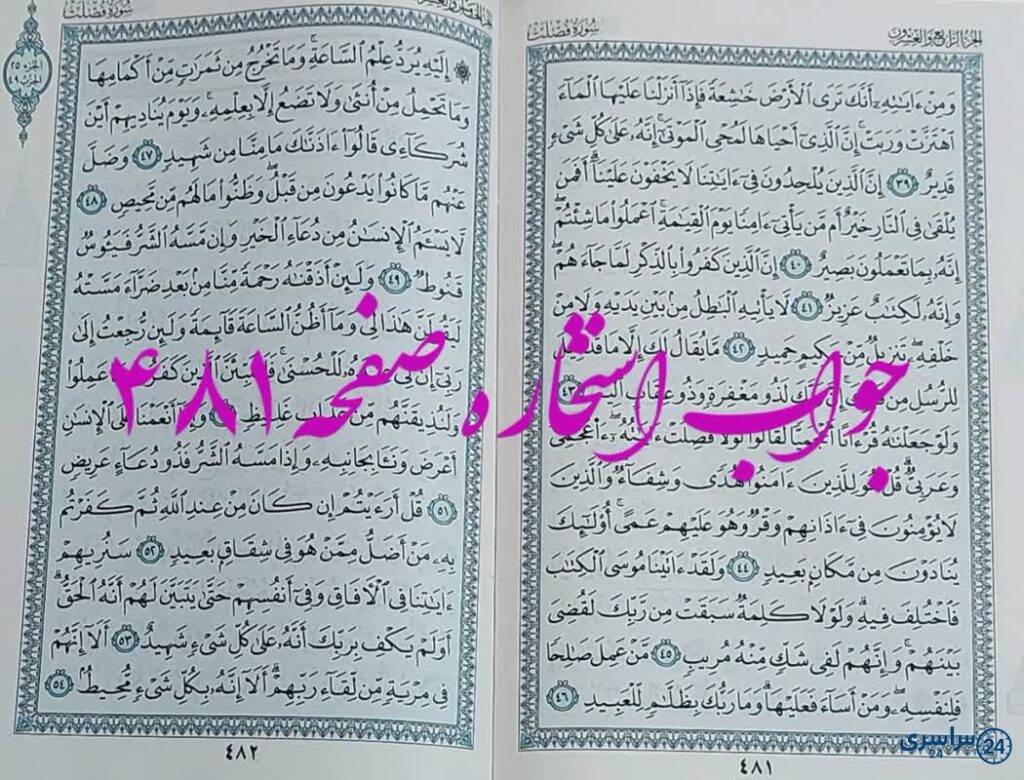 الجزء الرابع والعشرون سورة فصلت
وَمِنْ ءَايَٰتِهِۦٓ أَنَّكَ تَرَى ٱلْأَرْضَ خَٰشِعَةً فَإِذَآ أَنزَلْنَا عَلَيْهَا ٱلْمَآءَ
ٱهْتَزَّتْ وَرَبَتْ ۚ إِنَّ ٱلَّذِىٓ أَحْيَاهَا لَمُحْىِ ٱلْمَوْتَىٰٓ ۚ إِنَّهُۥ عَلَىٰ كُلِّ شَىْءٍ
قَدِيرٌ ٣٩ إِنَّ ٱلَّذِينَ يُلْحِدُونَ فِىٓ ءَايَٰتِنَا لَا يَخْفَوْنَ عَلَيْنَآ ۗ أَفَمَن
يُلْقَىٰ فِى ٱلنَّارِ خَيْرٌ أَم مَّن يَأْتِىٓ ءَامِنًا يَوْمَ ٱلْقِيَٰمَةِ ۚ ٱعْمَلُوا۟ مَا شِئْتُمْ ۖ
إِنَّهُۥ بِمَا تَعْمَلُونَ بَصِيرٌ ٤٠ إِنَّ ٱلَّذِينَ كَفَرُوا۟ بِٱلذِّكْرِ لَمَّا جَآءَهُمْ ۖ
وَإِنَّهُۥ لَكِتَٰبٌ عَزِيزٌ ٤١ لَّا يَأْتِيهِ ٱلْبَٰطِلُ مِنۢ بَيْنِ يَدَيْهِ وَلَا مِنْ
خَلْفِهِۦ ۖ تَنزِيلٌ مِّنْ حَكِيمٍ حَمِيدٍ ٤٢ مَّا يُقَالُ لَكَ إِلَّا مَا قَدْ قِيلَ
لِلرُّسُلِ مِن قَبْلِكَ ۚ إِنَّ رَبَّكَ لَذُو مَغْفِرَةٍ وَذُو عِقَابٍ أَلِيمٍ ٤٣
وَلَوْ جَعَلْنَٰهُ قُرْءَانًا أَعْجَمِيًّا لَّقَالُوا۟ لَوْلَا فُصِّلَتْ ءَايَٰتُهُۥٓ ۖ ءَا۬عْجَمِىٌّ
وَعَرَبِىٌّ ۗ قُلْ هُوَ لِلَّذِينَ ءَامَنُوا۟ هُدًى وَشِفَآءٌ ۖ وَٱلَّذِينَ
لَا يُؤْمِنُونَ فِىٓ ءَاذَانِهِمْ وَقْرٌ وَهُوَ عَلَيْهِمْ عَمًى ۚ أُو۟لَٰٓئِكَ
يُنَادَوْنَ مِن مَّكَانٍۭ بَعِيدٍ ٤٤ وَلَقَدْ ءَاتَيْنَا مُوسَى ٱلْكِتَٰبَ
فَٱخْتُلِفَ فِيهِ ۗ وَلَوْلَا كَلِمَةٌ سَبَقَتْ مِن رَّبِّكَ لَقُضِىَ
بَيْنَهُمْ ۚ وَإِنَّهُمْ لَفِى شَكٍّ مِّنْهُ مُرِيبٍ ٤٥ مَّنْ عَمِلَ صَٰلِحًا
فَلِنَفْسِهِۦ ۖ وَمَنْ أَسَآءَ فَعَلَيْهَا ۗ وَمَا رَبُّكَ بِظَلَّٰمٍ لِّلْعَبِيدِ ٤٦
٤٨١
سورة فصلت
الجزء ٢٥
الحزب ٤٩
إِلَيْهِ يُرَدُّ عِلْمُ ٱلسَّاعَةِ ۚ وَمَا تَخْرُجُ مِن ثَمَرَٰتٍ مِّنْ أَكْمَامِهَا
وَمَا تَحْمِلُ مِنْ أُنثَىٰ وَلَا تَضَعُ إِلَّا بِعِلْمِهِۦ ۚ وَيَوْمَ يُنَادِيهِمْ أَيْنَ
شُرَكَآءِى قَالُوٓا۟ ءَاذَنَّٰكَ مَا مِنَّا مِن شَهِيدٍ ٤٧ وَضَلَّ
عَنْهُم مَّا كَانُوا۟ يَدْعُونَ مِن قَبْلُ ۖ وَظَنُّوا۟ مَا لَهُم مِّن مَّحِيصٍ ٤٨
لَّا يَسْـَٔمُ ٱلْإِنسَٰنُ مِن دُعَآءِ ٱلْخَيْرِ وَإِن مَّسَّهُ ٱلشَّرُّ فَيَـُٔوسٌ
قَنُوطٌ ٤٩ وَلَئِنْ أَذَقْنَٰهُ رَحْمَةً مِّنَّا مِنۢ بَعْدِ ضَرَّآءَ مَسَّتْهُ
لَيَقُولَنَّ هَٰذَا لِى وَمَآ أَظُنُّ ٱلسَّاعَةَ قَآئِمَةً وَلَئِن رُّجِعْتُ إِلَىٰ
رَبِّىٓ إِنَّ لِى عِندَهُۥ لَلْحُسْنَىٰ ۚ فَلَنُنَبِّئَنَّ ٱلَّذِينَ كَفَرُوا۟ بِمَا عَمِلُوا۟
وَلَنُذِيقَنَّهُم مِّنْ عَذَابٍ غَلِيظٍ وَإِذَآ أَنْعَمْنَا عَلَى ٱلْإِنسَٰنِ
أَعْرَضَ وَنَـَٔا بِجَانِبِهِۦ وَإِذَا مَسَّهُ ٱلشَّرُّ فَذُو دُعَآءٍ عَرِيضٍ
٥١ قُلْ أَرَءَيْتُمْ إِن كَانَ مِنْ عِندِ ٱللَّهِ ثُمَّ كَفَرْتُم
بِهِۦ مَنْ أَضَلُّ مِمَّنْ هُوَ فِى شِقَاقٍۭ بَعِيدٍ ٥٢ سَنُرِيهِمْ
ءَايَٰتِنَا فِى ٱلْءَافَاقِ وَفِىٓ أَنفُسِهِمْ حَتَّىٰ يَتَبَيَّنَ لَهُمْ أَنَّهُ ٱلْحَقُّ ۗ
أَوَلَمْ يَكْفِ بِرَبِّكَ أَنَّهُۥ عَلَىٰ كُلِّ شَىْءٍ شَهِيدٌ ٥٣ أَلَآ إِنَّهُمْ
فِى مِرْيَةٍ مِّن لِّقَآءِ رَبِّهِمْ ۗ أَلَآ إِنَّهُۥ بِكُلِّ شَىْءٍ مُّحِيطٌۢ ٥٤
٤٨٢
جواب استخاره صفحه ۴۸۱
سراسری 24
24